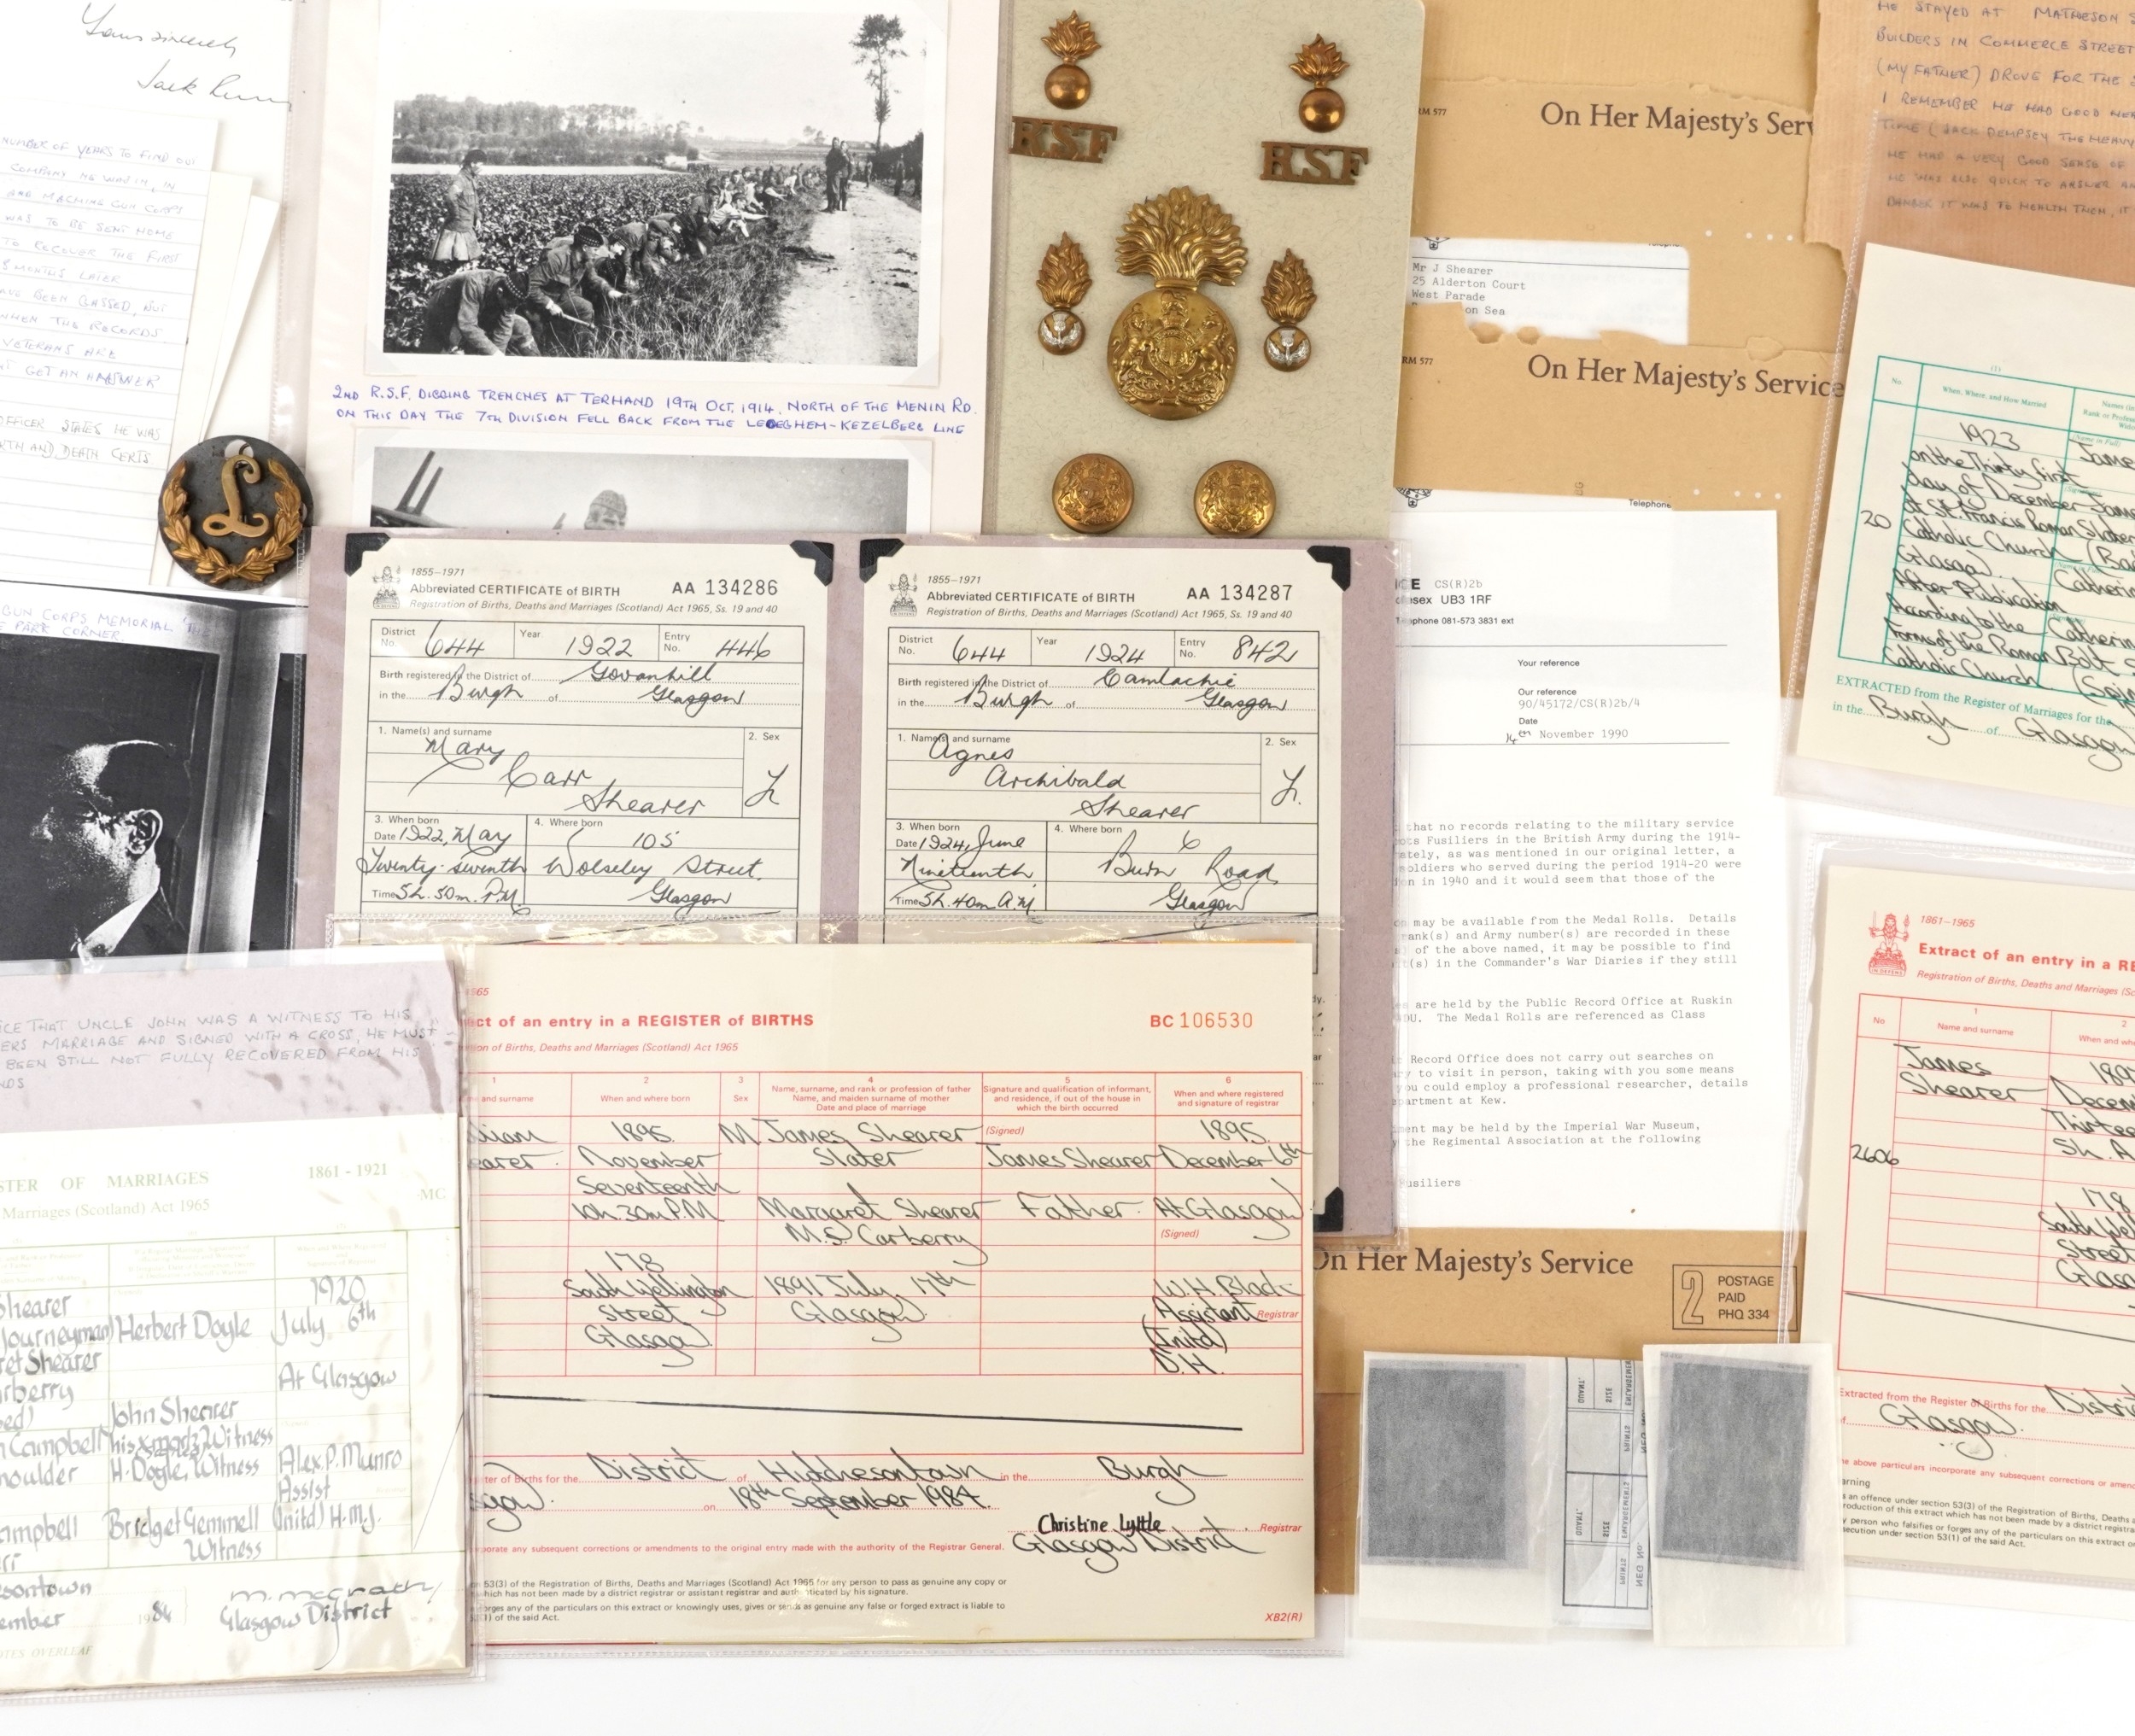 Yours sincerely
Jack
NUMBER OF YEARS TO FIND OUT
COMPANY HE WAS IN, IN
AND MACHINE GUN CORPS
WAS TO BE SENT HOME
TO RECOVER THE FIRST
8 MONTHS LATER
AVE BEEN GASSED, BUT
WHEN THE RECORDS
VETERANS ARE
GET AN ANSWER
OFFICER STATES HE WAS
RTH AND DEATH CERTS
2ND R.S.F. DIGGING TRENCHES AT TERHAND 19TH OCT, 1914, NORTH OF THE MENIN RD.
ON THIS DAY THE 7TH DIVISION FELL BACK FROM THE LEDEGHEM-KEZELBERG LINE
R.S.F
R.S.F
RM 577
On Her Majesty's Serv
Mr J Shearer
25 Alderton Court
West Parade
on Sea
RM 577
On Her Majesty's Service
HE STAYED AT MATHESON S
BUILDERS IN COMMERCE STREET
(MY FATHER) DROVE FOR THE
I REMEMBER HE HAD GOOD
TIME (JACK DEMPSEY THE HEAVY
HE HAD A VERY GOOD SENSE OF
HE WAS ALSO QUICK TO ANSWER
DANGER IT WAS TO HEALTH THEN, IT
No.
When, Where, and How Married
1923
on the Thirty first
day of December
at St. Francis Roman
20
Catholic Church
Glasgow
After Publication
According to the
Forms of the Roman
Catholic Church
James
James
Slater
Catherin
Catherin
EXTRACTED from the Register of Marriages for the
in the Burgh of Glasgow
GUN CORPS MEMORIAL 'THE
E PARK CORNER.
1855–1971
Abbreviated CERTIFICATE of BIRTH AA 134286
Registration of Births, Deaths and Marriages (Scotland) Act 1965, Ss. 19 and 40
District No. 644 Year 1922 Entry No. 446
Birth registered in the District of Govanhill
in the Burgh of Glasgow
1. Name(s) and surname 2. Sex
Mary
Carr
Shearer
F
3. When born 4. Where born
Date 1922, May 105
Twenty-seventh Wolseley Street.
Time 5h. 50m. P.M. Glasgow
1855–1971
Abbreviated CERTIFICATE of BIRTH AA 134287
Registration of Births, Deaths and Marriages (Scotland) Act 1965, Ss. 19 and 40
District No. 644 Year 1924 Entry No. 842
Birth registered in the District of Camlachie
in the Burgh of Glasgow
1. Name(s) and surname 2. Sex
Agnes
Archibald
Shearer
F.
3. When born 4. Where born
Date 1924, June 6
Nineteenth Burn Road
Time 5h. 40m. A.M. Glasgow
Telephone
CE CS(R)2b
esex UB3 1RF
ephone 081-573 3831 ext
Your reference
Our reference
90/45172/CS(R)2b/4
Date
14th November 1990
that no records relating to the military service
ots Fusiliers in the British Army during the 1914-
ately, as was mentioned in our original letter, a
oldiers who served during the period 1914-20 were
on in 1940 and it would seem that those of the
may be available from the Medal Rolls. Details
rank(s) and Army number(s) are recorded in these
of the above named, it may be possible to find
t(s) in the Commander's War Diaries if they still
es are held by the Public Record Office at Ruskin
DU. The Medal Rolls are referenced as Class
c Record Office does not carry out searches on
ry to visit in person, taking with you some means
you could employ a professional researcher, details
partment at Kew.
ment may be held by the Imperial War Museum,
the Regimental Association at the following
usiliers
On Her Majesty's Service
2 POSTAGE
PAID
PHQ 334
ICE THAT UNCLE JOHN WAS A WITNESS TO HIS
ERS MARRIAGE AND SIGNED WITH A CROSS, HE MUST
BEEN STILL NOT FULLY RECOVERED FROM HIS
NDS
STER OF MARRIAGES 1861 - 1921
MC
Marriages (Scotland) Act 1965
1920
Shearer
(Journeyman) Herbert Doyle July 6th
ret Shearer
At Glasgow
rberry
John Shearer
Campbell his x mark, Witness
moulder H. Doyle, Witness Alex. P. Munro
Assist
ampbell Bridget Gemmell (Initd) H.M.J.
Witness
sontown
ember 1984
M. McGrath
Glasgow District
OTES OVERLEAF
965
act of an entry in a REGISTER of BIRTHS BC 106530
on of Births, Deaths and Marriages (Scotland) Act 1965
1 2 3 4 5 6
and surname
When and where born
Sex
Name, surname, and rank or profession of father
Name, and maiden surname of mother
Date and place of marriage
Signature and qualification of informant,
and residence, if out of the house in
which the birth occurred
When and where registered
and signature of registrar
lliam
earer
1895
November
Seventeenth
10h. 30m P.M
178
South Wellington
Street
Glasgow
M
James Shearer
Slater
Margaret Shearer
M.S. Carberry
1891 July 17th
Glasgow
(Signed)
James Shearer
Father
1895
December 6th
At Glasgow
(Signed)
W. H. Black
Assistant Registrar
(Initd)
D.H.
ster of Births for the District of Hutchesontown in the Burgh
sgow on 18th September 1984.
Christine Lyttle Registrar
Glasgow District
porate any subsequent corrections or amendments to the original entry made with the authority of the Registrar General.
53(3) of the Registration of Births, Deaths and Marriages (Scotland) Act 1965 for any person to pass as genuine any copy or
hich has not been made by a district registrar or assistant registrar and authenticated by his signature.
orges any of the particulars on this extract or knowingly uses, gives or sends as genuine any false or forged extract is liable to
of the said Act.
XB2(R)
QUANT. SIZE ENLARGEMENTS
STRIPS NEG NO.
QUANT. SIZE ENLARGEMENTS
STRIPS NEG NO.
1861–1965
Extract of an entry in a RE
Registration of Births, Deaths and Marriages (Sc
No
1
Name and surname
2
When and whe
James
Shearer
2606
189
Decem
Thirtee
5h. A
178
South Wel
Street
Glasg
Extracted from the Register of Births for the District
of Glasgow
he above particulars incorporate any subsequent corrections or amend
arning
an offence under section 53(3) of the Registration of Births, Deaths a
roduction of this extract which has not been made by a district registrar
y person who falsifies or forges any of the particulars on this extract or
secution under section 53(1) of the said Act.